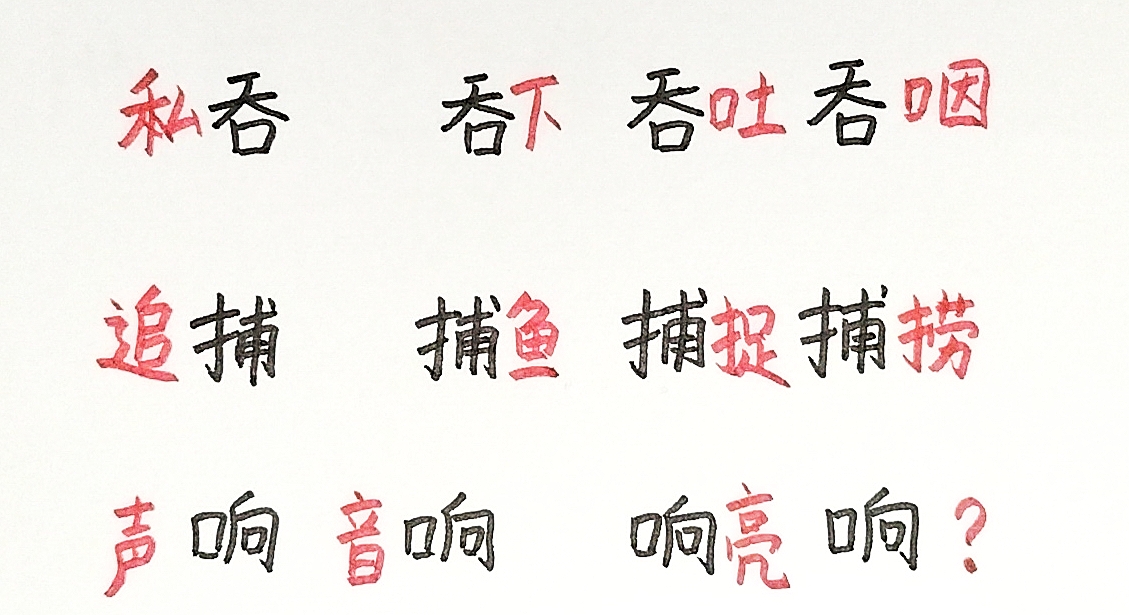 私吞 吞下 吞吐 吞咽
追捕 捕鱼 捕捉 捕捞
声响 音响 响亮 响?